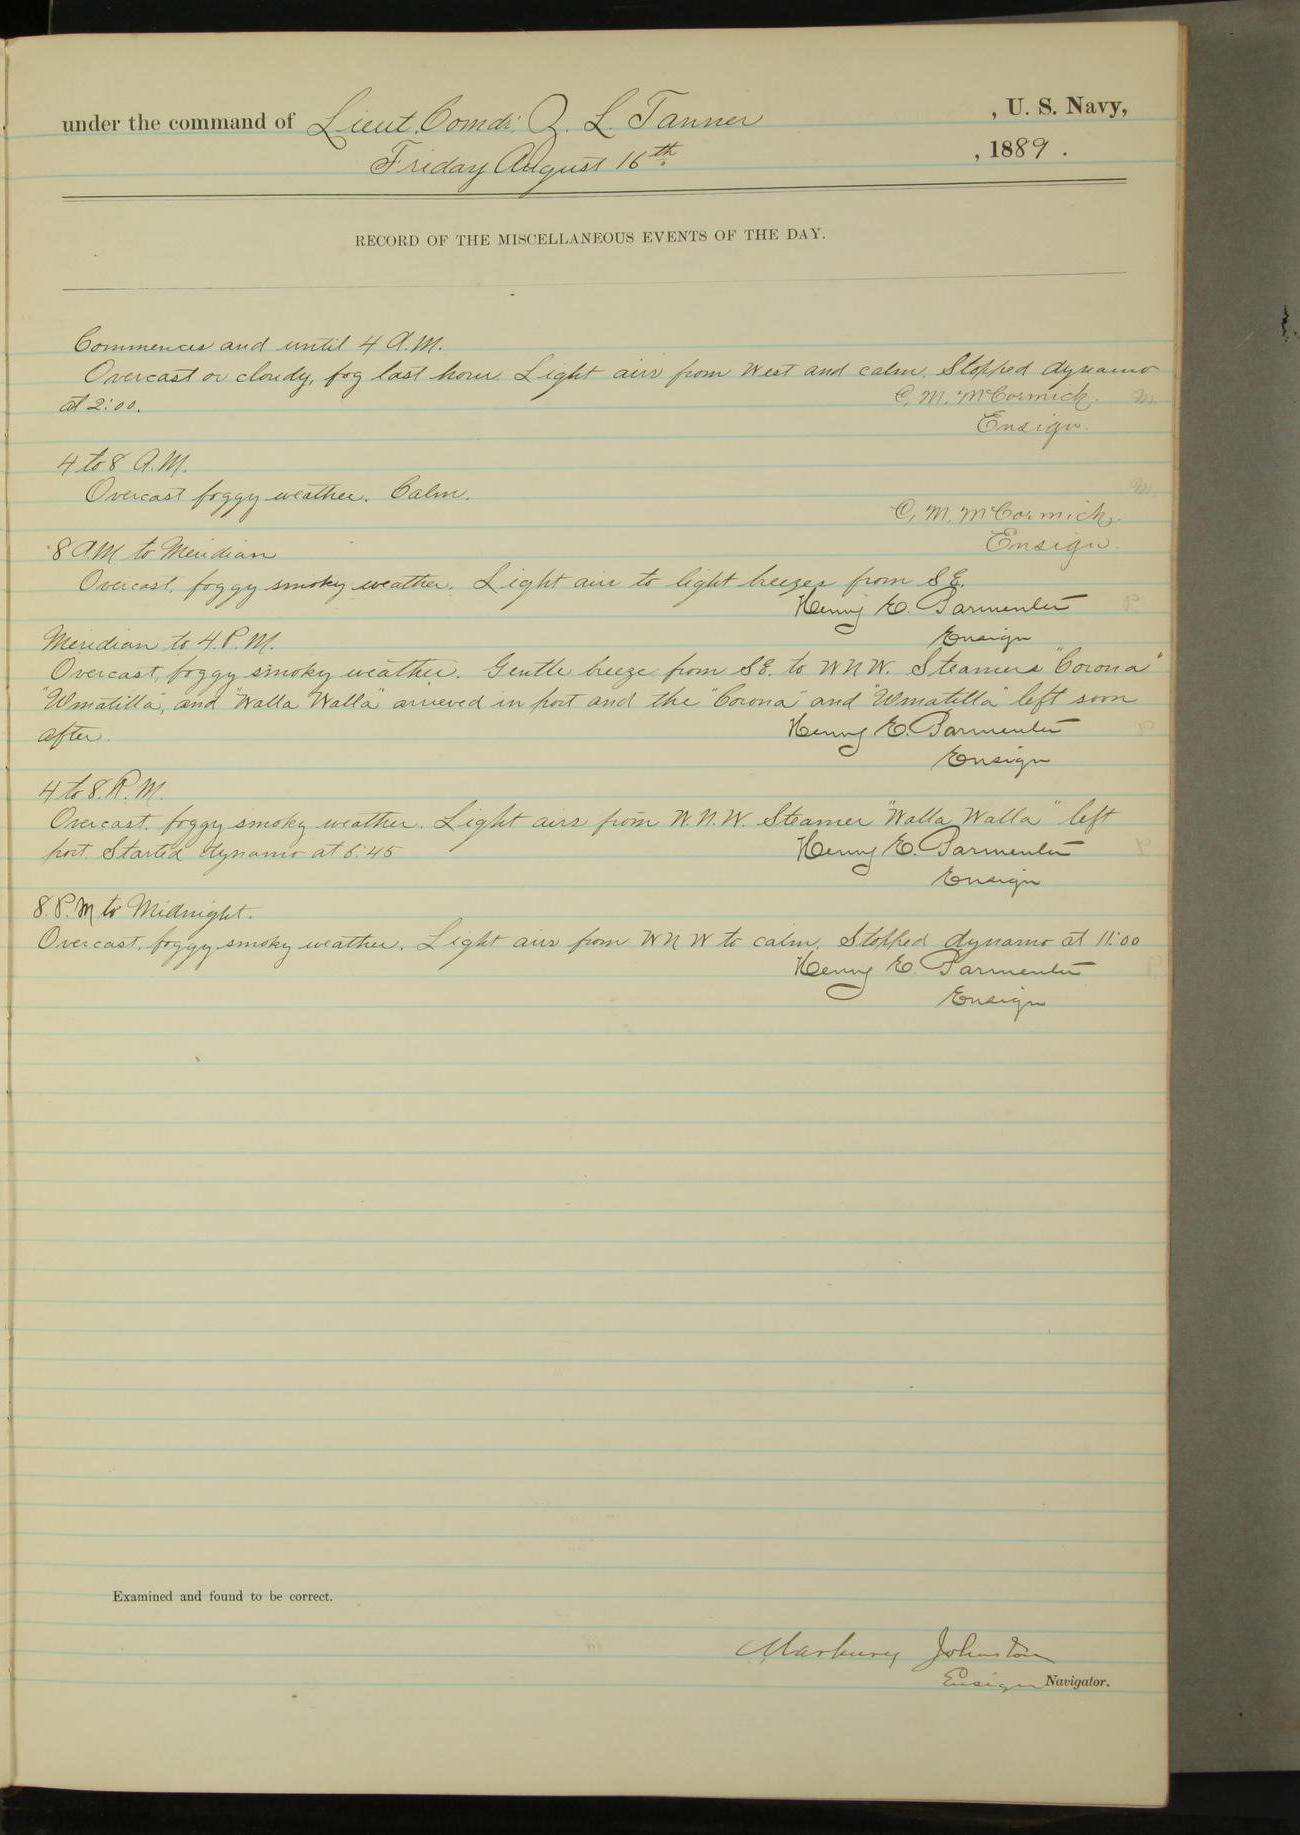 under the command of Lieut. Comdr. Z. L. Tanner , U. S. Navy,
Friday August 16th , 1889 .
RECORD OF THE MISCELLANEOUS EVENTS OF THE DAY.
Commences and until 4 A.M.
Overcast or cloudy, fog last hour. Light airs from West and calm. Stopped dynamo
at 2:00. C. M. McCormick.
Ensign.
4 to 8 A.M.
Overcast foggy weather. Calm.
C. M. McCormick.
Ensign.
8 A.M to Meridian
Overcast, foggy smoky weather. Light airs to light breezes from S.E.
Henry E. Parmenter
Ensign
Meridian to 4. P.M.
Overcast, foggy smoky weather. Gentle breeze from S.E. to WNW. Steamers "Corona"
"Umatilla", and "Walla Walla" arrieved in port and the "Corona" and "Umatilla" left soon
after. Henry E. Parmenter
Ensign
4 to 8. P.M.
Overcast. foggy smoky weather. Light airs from W.N.W. Steamer "Walla Walla" left
port. Started dynamo at 6:45 Henry E. Parmenter
Ensign
8. P.M to Midnight.
Overcast. foggy smoky weather. Light airs from WNW to calm. Stopped dynamo at 11:00
Henry E. Parmenter
Ensign
Examined and found to be correct.
Marbury Johnston
Ensign Navigator.